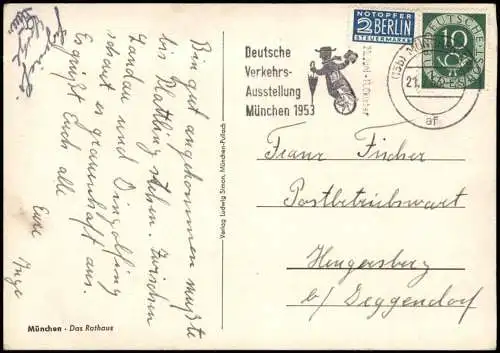 Bin gut angekommen mußte
bis Plattling stehen. Zwischen
Landau und Dingolfing
schaut es grauenhaft aus.
Es grüßt Euch alle
Eure
Inge
München - Das Rathaus
Verlag Ludwig Simon, München-Pullach
Deutsche
Verkehrs-
Ausstellung
München 1953
NOTOPFER
2 BERLIN
STEUERMARKE
DEUTSCHE
10
(13b) MÜN
21.
af
Franz Fischer
Postbetriebswart
Hengersberg
b/ Deggendorf